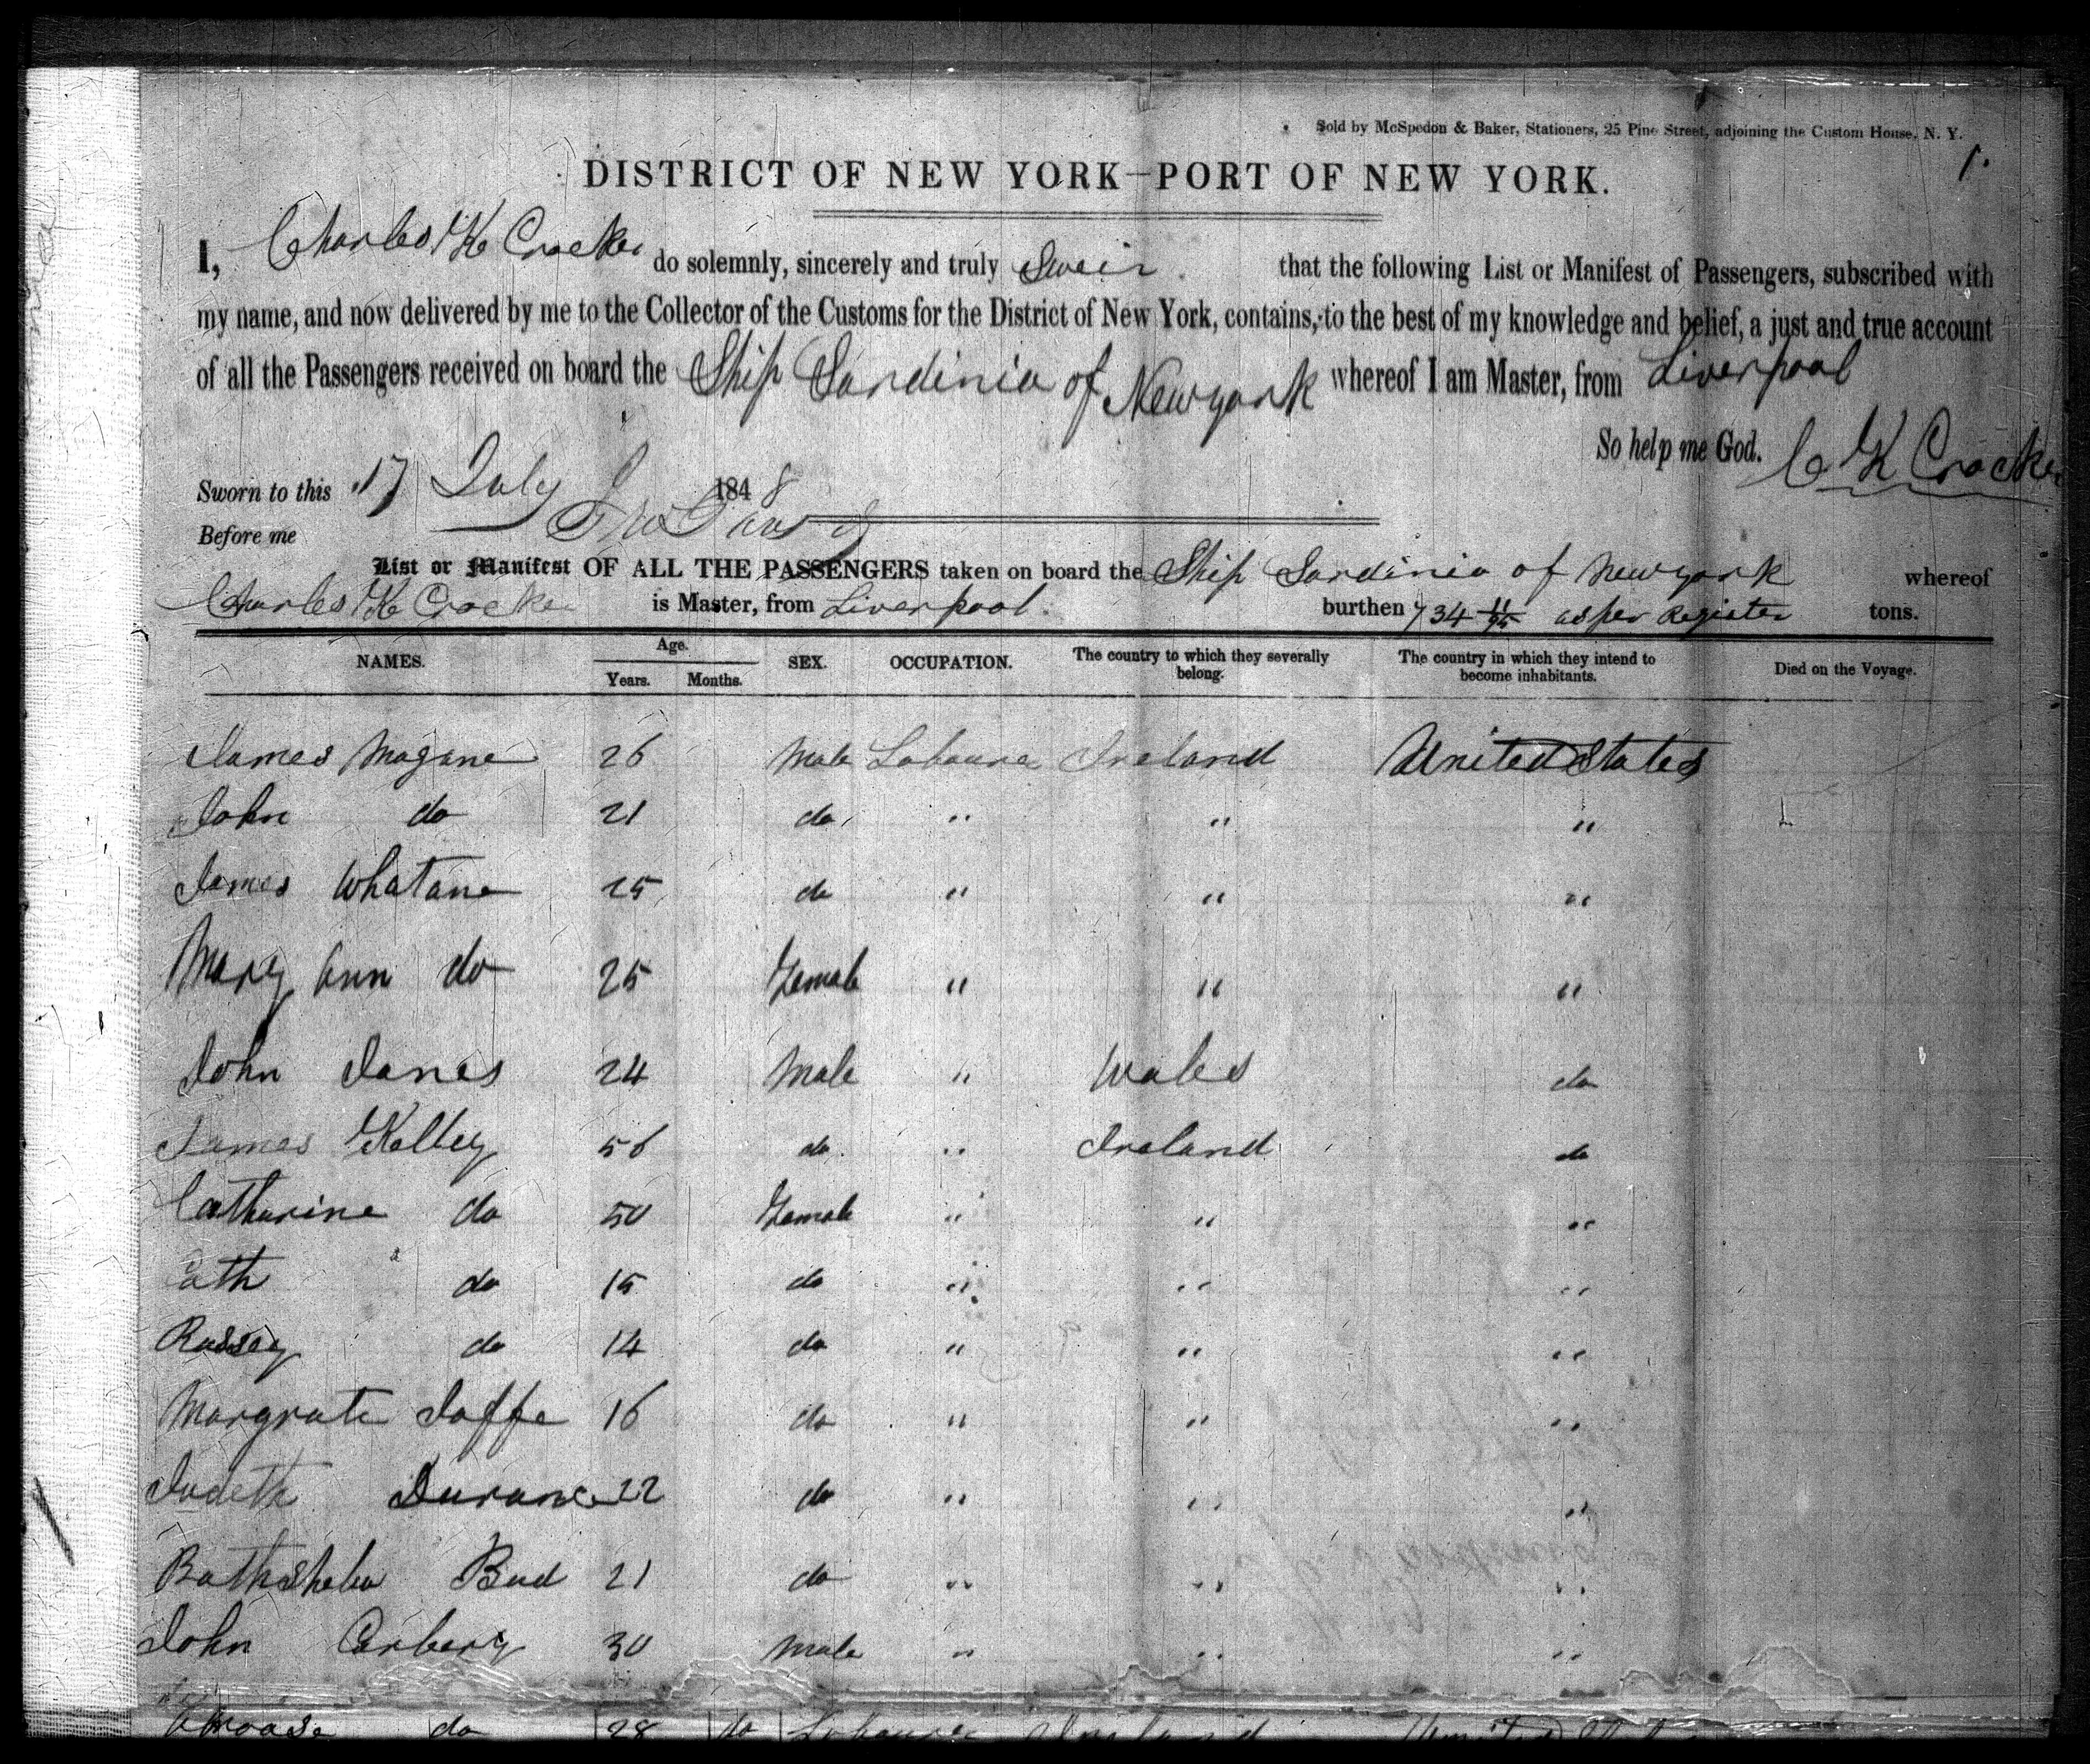 Sold by McSpedon & Baker, Stationers, 25 Pine Street, adjoining the Custom House, N. Y.
1.
DISTRICT OF NEW YORK—PORT OF NEW YORK.
I, Charles K Crocker do solemnly, sincerely and truly Sweir that the following List or Manifest of Passengers, subscribed with
my name, and now delivered by me to the Collector of the Customs for the District of New York, contains, to the best of my knowledge and belief, a just and true account
of all the Passengers received on board the Ship Sardinia of Newyork whereof I am Master, from Liverpool
So help me God. C K Crocker
Sworn to this 17 July 1848
Before me
List or Manifest OF ALL THE PASSENGERS taken on board the Ship Sardinia of Newyork whereof
Charles K Crocker is Master, from Liverpool. burthen 734 11/95 as per Register tons.
NAMES. Age. Years. Months. SEX. OCCUPATION. The country to which they severally belong. The country in which they intend to become inhabitants. Died on the Voyage.
James Magane 26 Male Laboure Ireland United States
John do 21 do " " "
James Whatane 25 do " " "
Mary Ann do 25 Female " " "
John Janes 24 Male " Wales do
James Kelley 56 do " Ireland do
Catharine do 50 Female " " "
Cath do 15 do " " "
Rassey do 14 do " " "
Margrate Joffe 16 do " " "
Judeth Durance 22 do " " "
Bathsheba Bud 21 do " " "
John Carbery 30 Male " " "
do 28 do Laboure Ireland United States